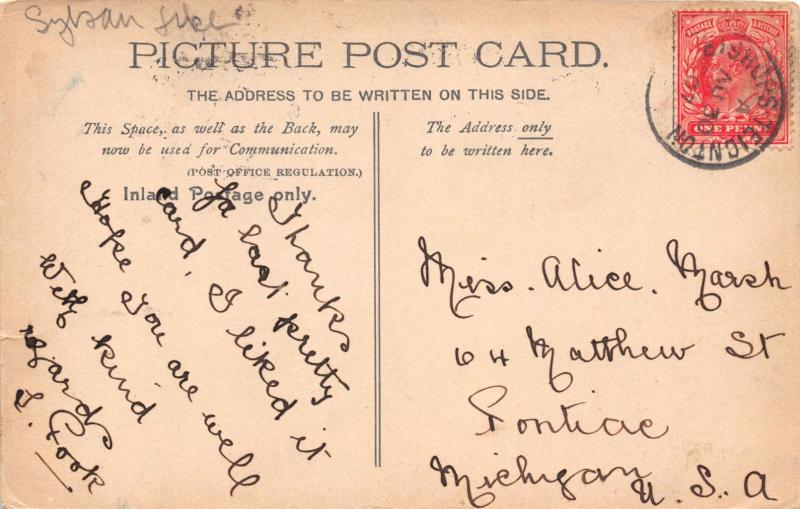 PICTURE POST CARD.
THE ADDRESS TO BE WRITTEN ON THIS SIDE.
This Space, as well as the Back, may
now be used for Communication.
(POST OFFICE REGULATION.)
Inland Postage only.
The Address only
to be written here.
POSTAGE & REVENUE
ONE PENNY
BISHOPSTEIGNTON
Thanks
for last pretty
card, I liked it
Hope you are well
With kind
regards
Miss. Alice. Marsh
64 Matthew St
Pontiac
Michigan
U. S. A